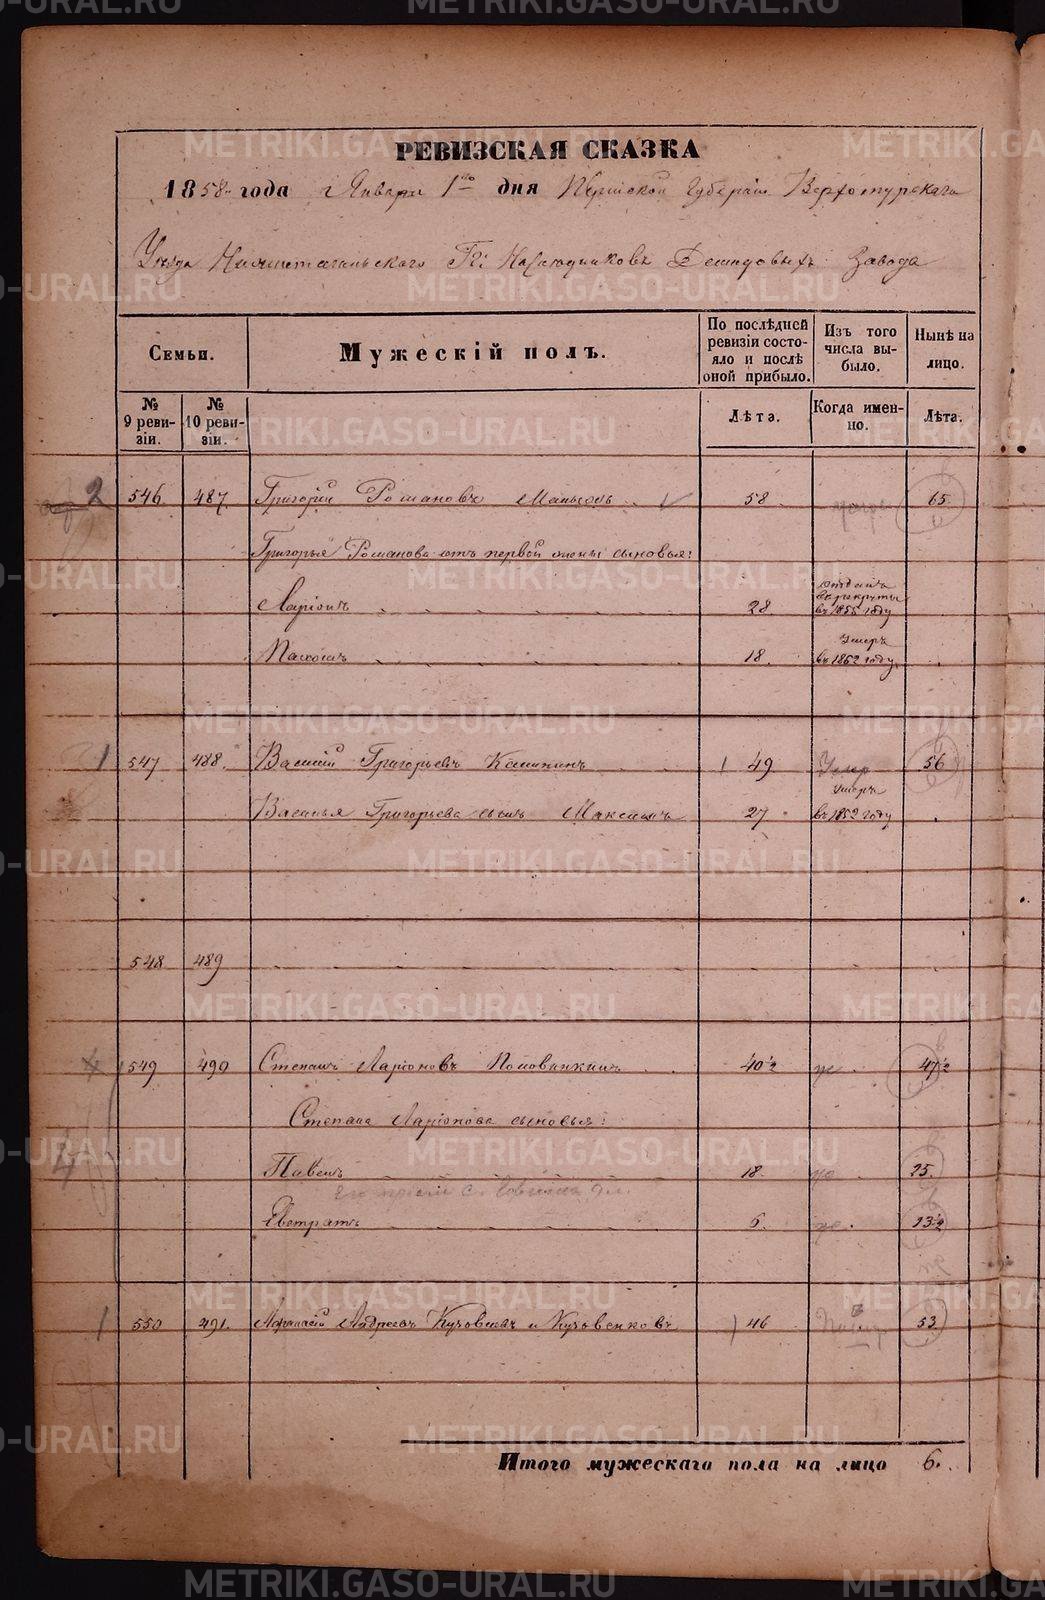 РЕВИЗСКАЯ СКАЗКА
1858 года Января 1го дня Пермской Губерніи Верхотурскаго
Уѣзда Нижнетагильскаго Гг: Наслѣдниковъ Демидовыхъ Завода
Семьи.
Мужескій полъ.
По послѣдней ревизіи состояло и послѣ оной прибыло.
Изъ того числа выбыло.
Нынѣ на лицо.
№ 9 ревизіи.
№ 10 ревизіи.
Лѣта.
Когда именно.
Лѣта.
2 546 487 Григорій Романовъ 58 65
Григорья Романова отъ первой жены сыновья:
Ларіонъ 28 отданъ въ рекруты въ 1855 году
Пахомъ 18 Умеръ въ 1852 году
1 547 488 Василій Григорьевъ Калининъ 49 Умер 56
Василья Григорьева сынъ Максимъ 27 умеръ въ 1852 году
548 489
4 549 490 Степанъ Ларіоновъ Половинкинъ 40½ 47½
Степана Ларіонова сыновья:
Павелъ 18 25
Евстратъ 6 13½
1 550 491 Афанасій Андреевъ 46 53
Итого мужескаго пола на лицо 6.
METRIKI.GASO-URAL.RU